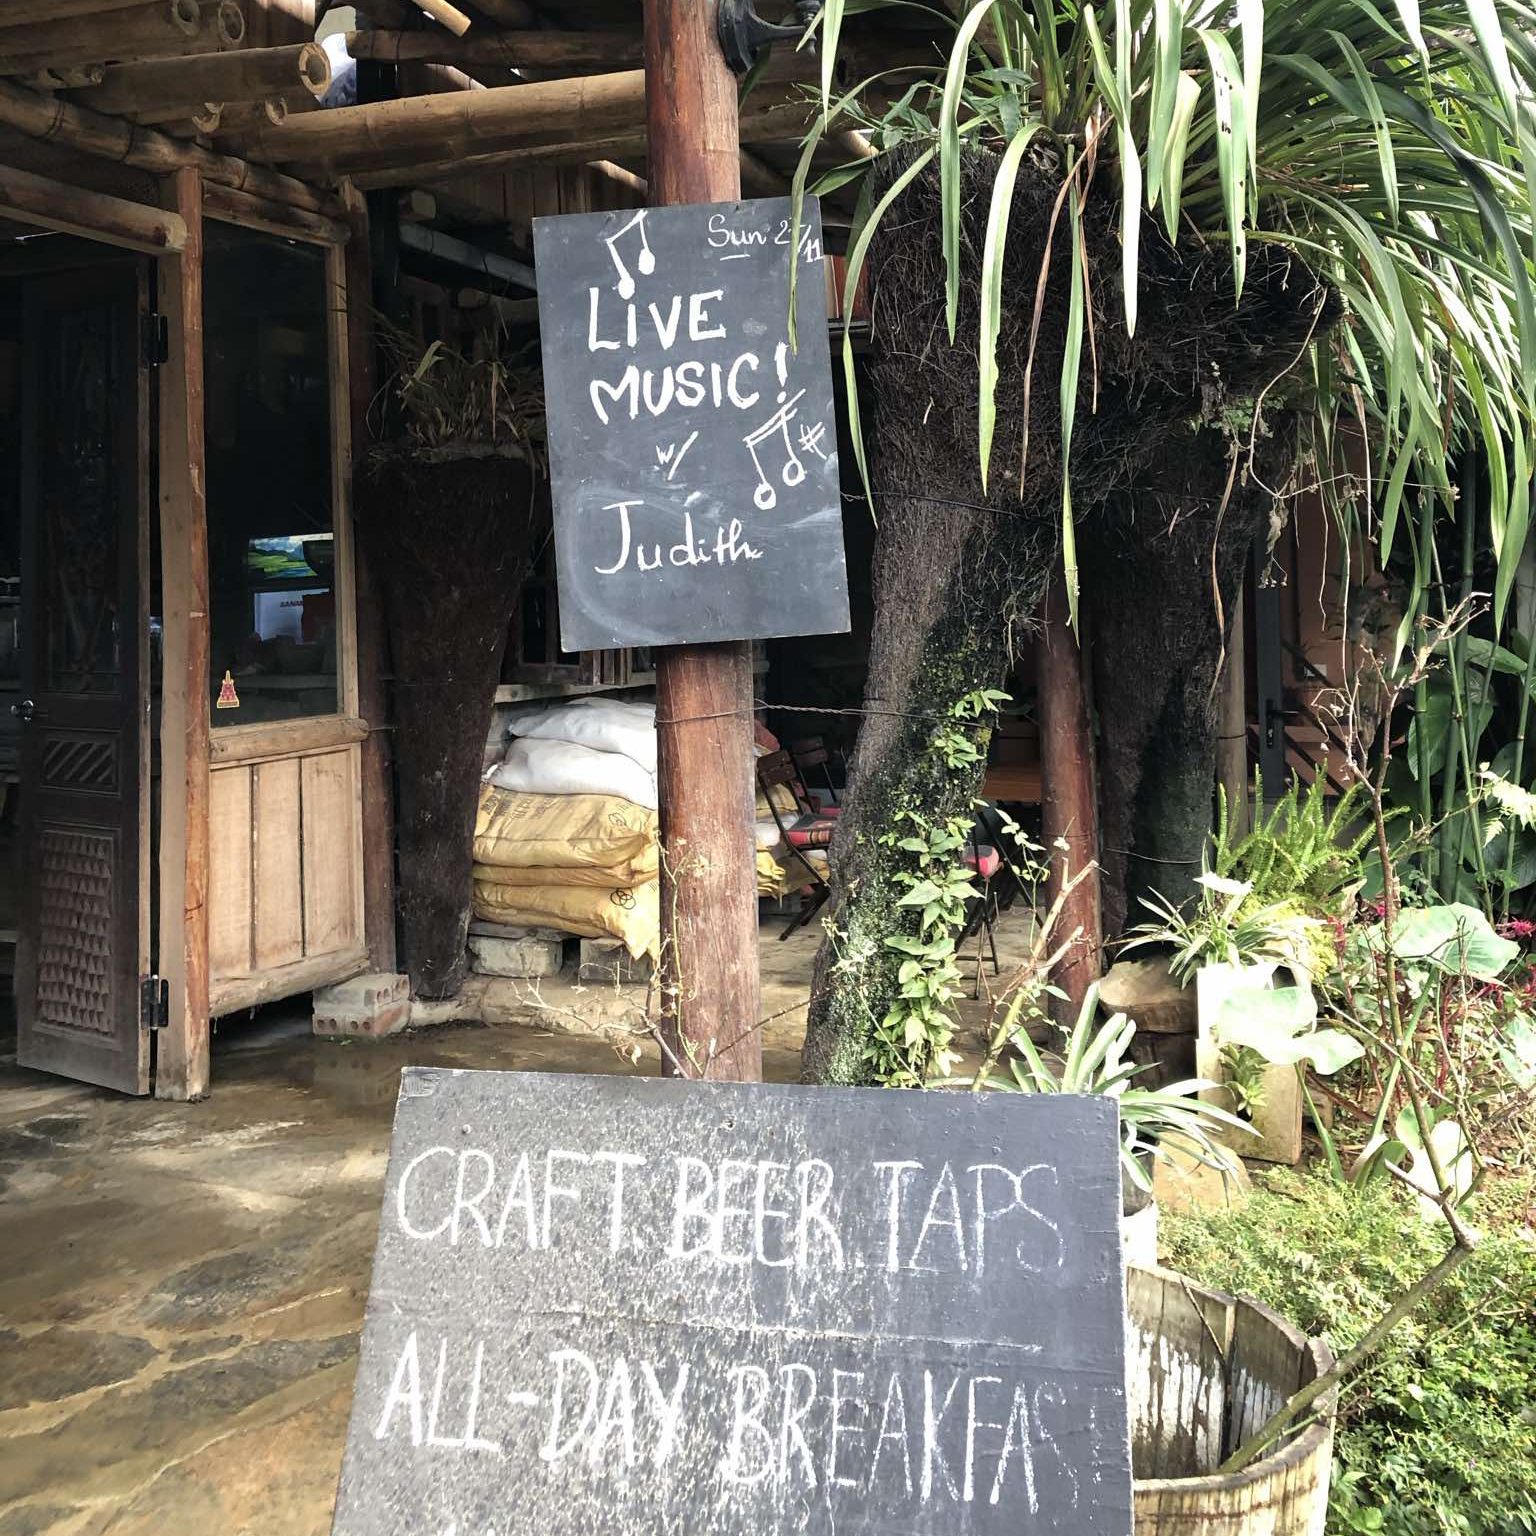 Sun
LiVE
MUSIC!
w/
Judith
CRAFT BEER TAPS
ALL-DAY BREAKFAS